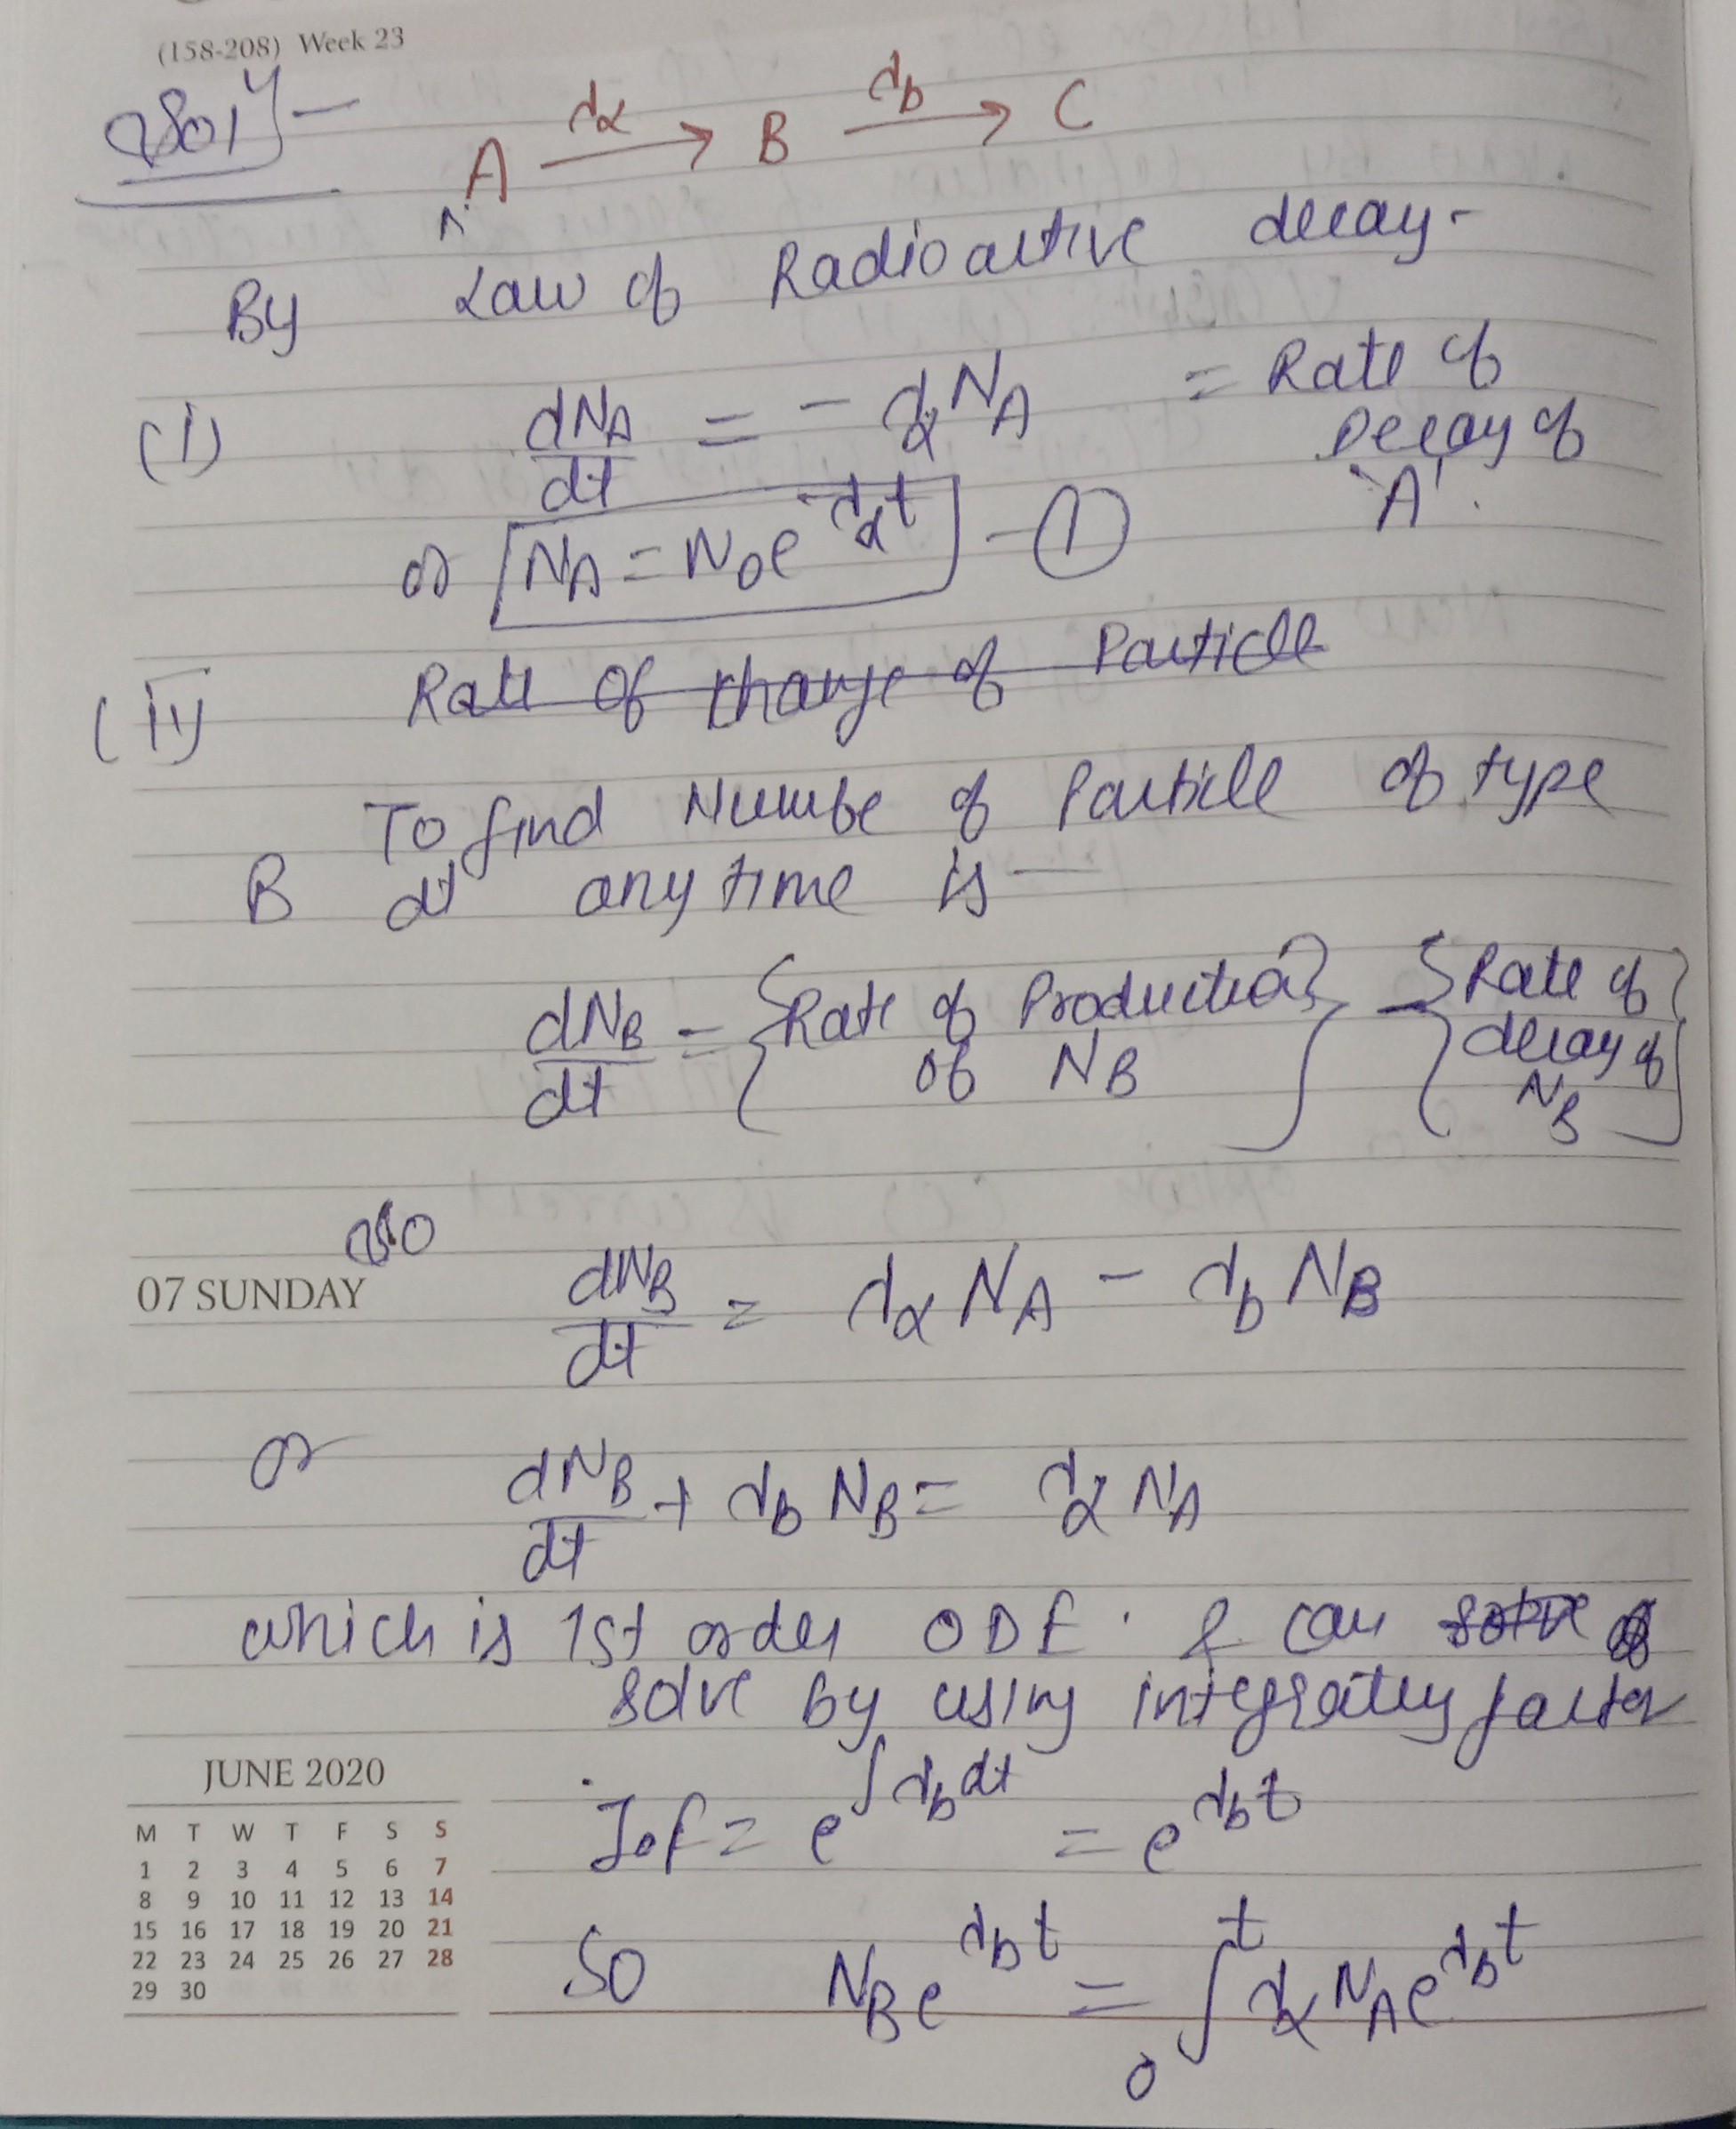 (158-208) Week 23
Soln -
A λα→ B λb→ C
By Law of Radioactive decay-
(i) dNA/dt = - λα NA = Rate of
Decay of
'A'.
or NA = N0 e^-λαt - ①
(ii) Rate of change of Particle
To find Numbe of Particle of type
B at any time is —
dNB/dt = {Rate of Production of NB} - {Rate of decay of NB}
So
07 SUNDAY
dNB/dt = λα NA - λb NB
or dNB/dt + λb NB = λα NA
which is 1st order ODE. & can solve
solve by using integrating factor
JUNE 2020
I.f = e^∫λb dt = e^λbt
M T W T F S S
1 2 3 4 5 6 7
8 9 10 11 12 13 14
15 16 17 18 19 20 21
22 23 24 25 26 27 28
29 30
So NB e^λbt = ∫0^t λα NA e^λbt